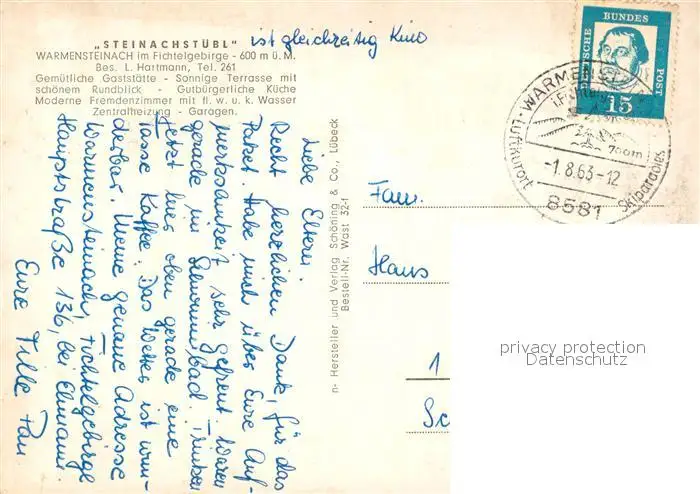 ist gleichzeitig Kino
„STEINACHSTÜBL"
WARMENSTEINACH im Fichtelgebirge - 600 m ü. M.
Bes. L. Hartmann, Tel. 261
Gemütliche Gaststätte - Sonnige Terrasse mit
schönem Rundblick - Gutbürgerliche Küche
Moderne Fremdenzimmer mit fl. w. u. k. Wasser
Zentralheizung - Garagen.
Liebe Eltern!
Recht herzlichen Dank, für das
Paket. Habe mich über Eure Auf-
merksamkeit sehr gefreut. Waren
gerade im Schwimmbad. Trinken
jetzt hier oben gerade eine
Tasse Kaffee. Das Wetter ist wun-
derbar. Meine genaue Adresse
Warmensteinach, Fichtelgebirge
Hauptstraße 136, bei
Eure
n- Hersteller und Verlag Schöning & Co., Lübeck
Bestell-Nr. Wast 32-f
DEUTSCHE
BUNDES
POST
15
WARMENST
i. Fichtelg
700m
-1.8.63-12
Luftkurort
Skiparadies
8581
Fam.
Haus
1
Sc
privacy protection
Datenschutz